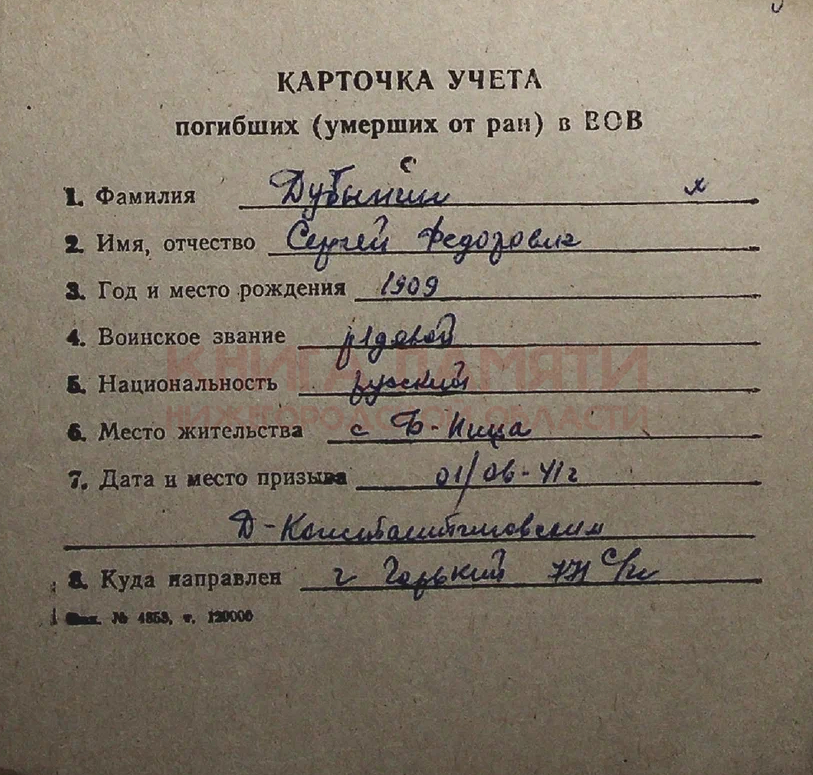 КАРТОЧКА УЧЕТА
погибших (умерших от ран) в ВОВ
с
1. Фамилия Дубынин х
2. Имя, отчество Сергей Федорович
3. Год и место рождения 1909
4. Воинское звание рядовой
КНИГА ПАМЯТИ
5. Национальность русский
НИЖЕГОРОДСКОЙ ОБЛАСТИ
6. Место жительства с Б-Пица
7. Дата и место призыва 01/06-41г
Д-Константиновским
8. Куда направлен г Горький 771 с/п
Зак. № 4858, т. 120000